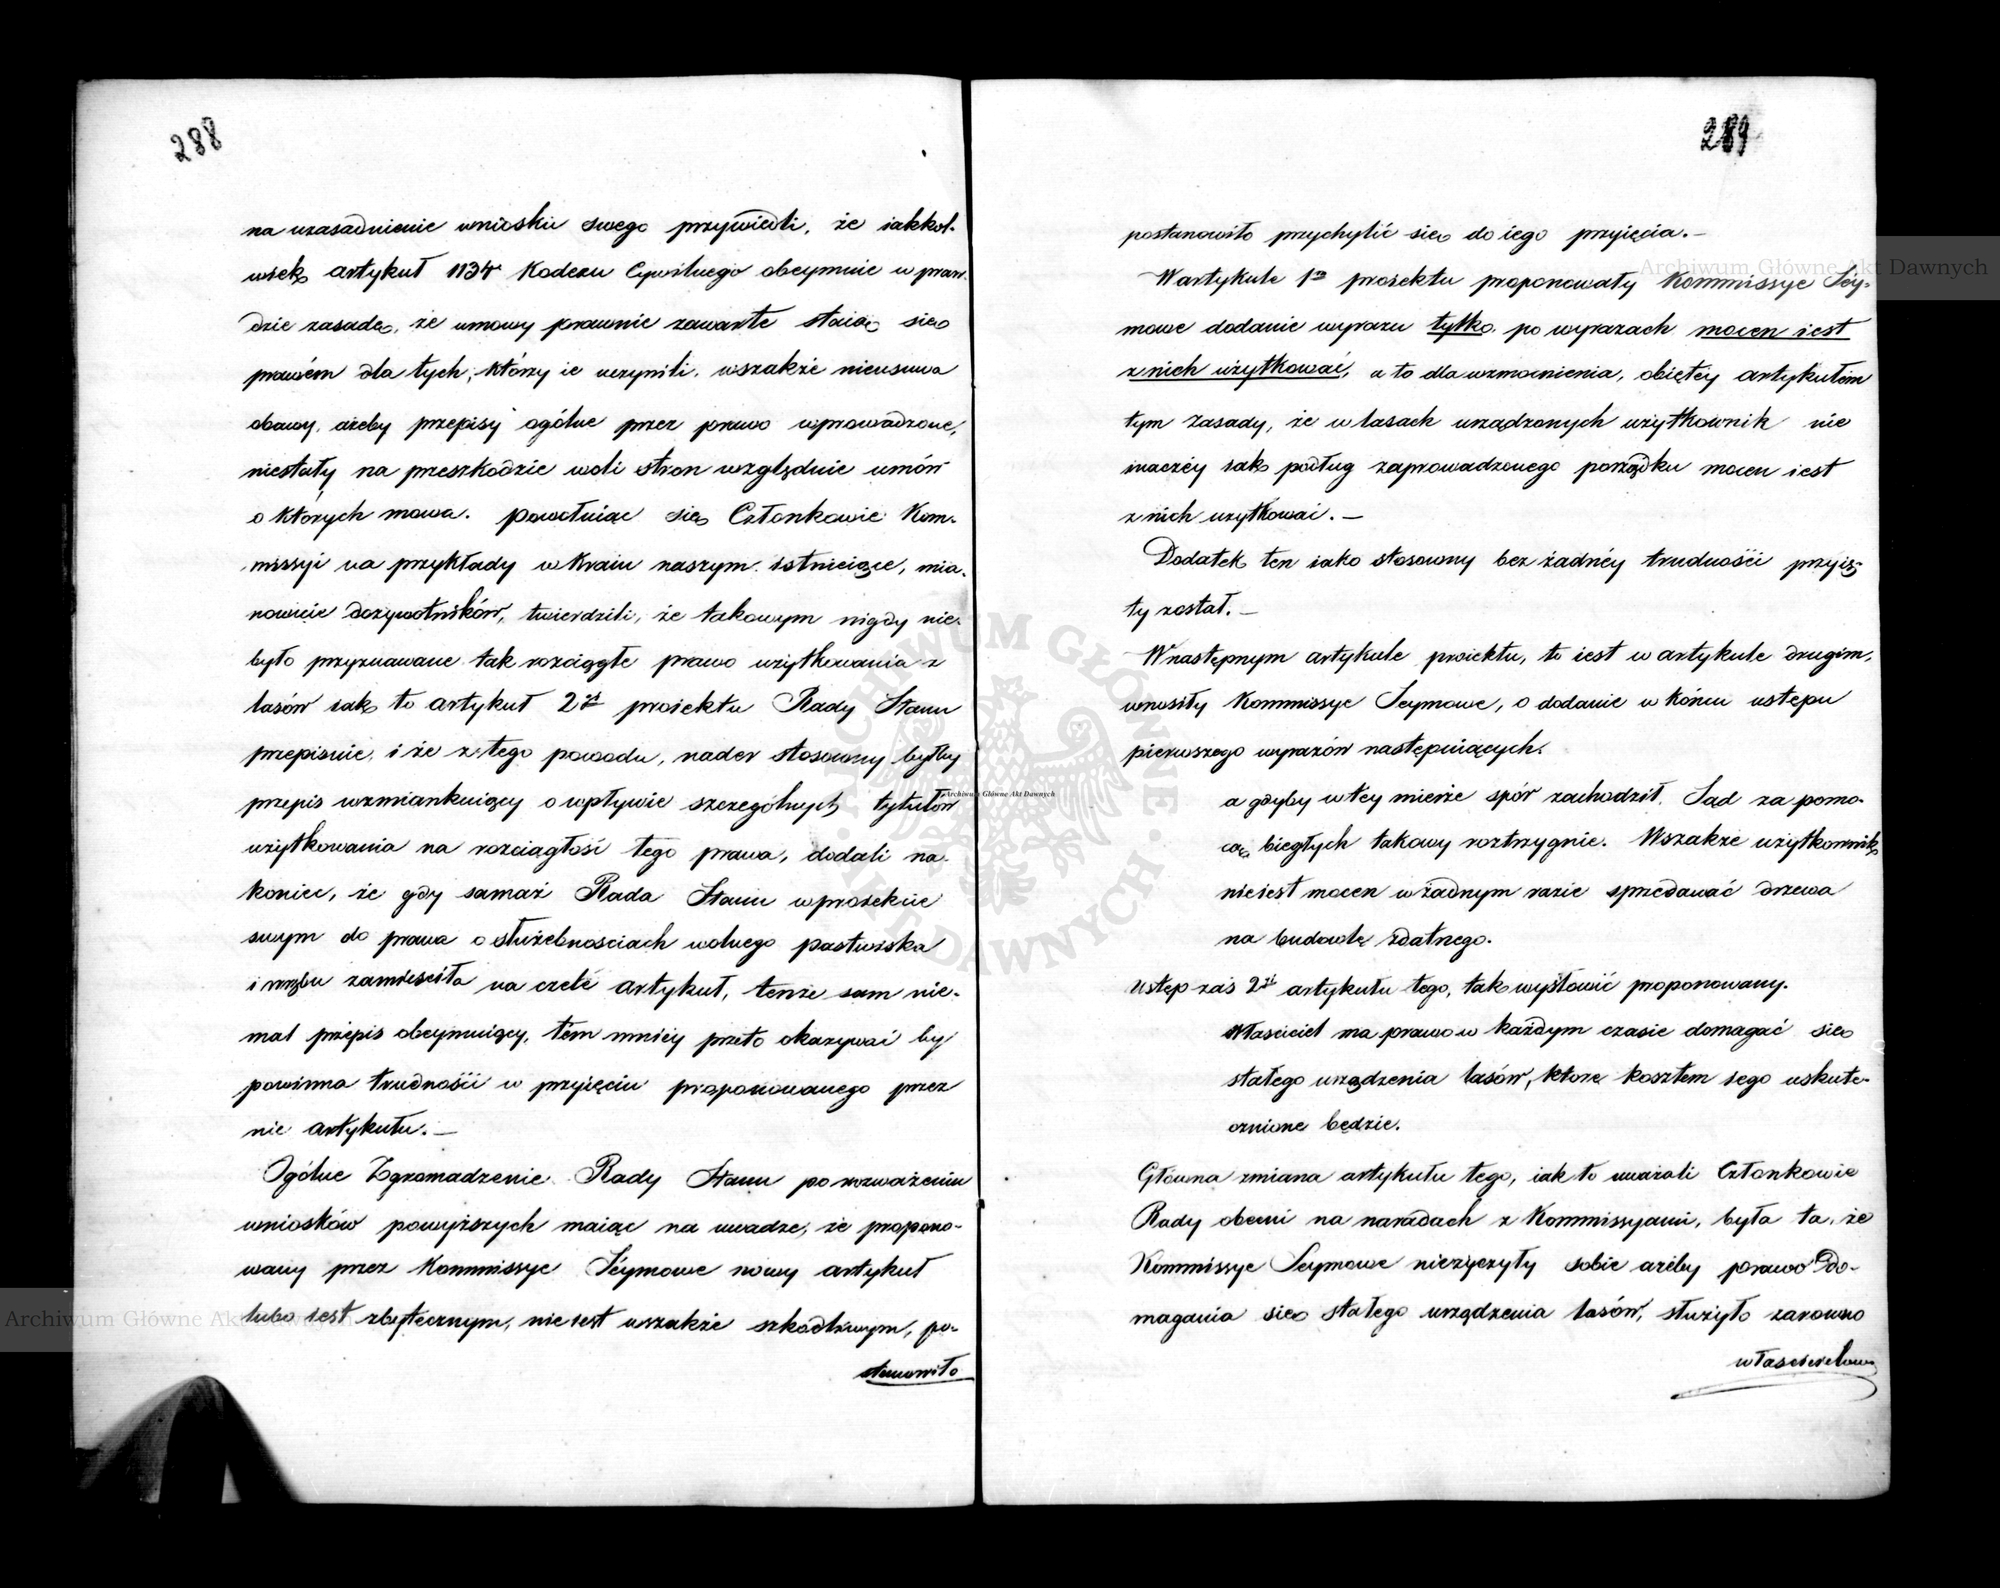 288
na uzasadnienie wniosku swego przywiedli, że iakkol-
wiek artykuł 1134 Kodexu Cywilnego obeymuie w praw-
dzie zasadę, że umowy prawnie zawarte staią się
prawem dla tych, którzy ie uczynili, wszakże nieusuwa
obawy, ażeby przepisy ogólne przez prawo wprowadzone,
niestały na przeszkodzie woli stron względnie umów
o których mowa. powołuiąc się Członkowie Kom-
missyi na przykłady w Kraiu naszym istnieiące, mia-
nowicie dożywotników, twierdzili, że takowym nigdy nie-
było przyznawane tak rozciągłe prawo użytkowania z
lasów iak to artykuł 2gi proiektu Rady Stanu
przepisuie, i że z tego powodu, nader stosowny byłby
przepis wzmiankuiący o wpływie szczególnych tytułów
użytkowania na rozciągłość tego prawa, dodali na-
koniec, że gdy samaż Rada Stanu w proiekcie
swym do prawa o służebnościach wolnego pastwiska
i wrębu zamieściła na czele artykuł, tenże sam nie-
mal przepis obeymuiący, tém mniéy przeto okazywać by
powinna trudności w przyięciu proponowanego przez
nie artykułu. —
Ogólne Zgromadzenie Rady Stanu po rozważeniu
wniosków powyższych maiąc na uwadze, że propono-
wany przez Kommissye Séymowe nowy artykuł
lubo iest zbytecznym, nie iest wszakże szkodliwym, po-
stanowiło
289
postanowiło przychylić się do iego przyięcia. —
W artykule 1m proiektu proponowały Kommissye Séy-
mowe dodanie wyrazu tylko po wyrazach mocen iest
z nich użytkować, a to dla wzmocnienia, obiętéy artykułem
tym zasady, że w lasach urządzonych użytkownik nie
inaczéy iak podług zaprowadzonego porządku mocen iest
z nich użytkować. —
Dodatek ten iako stosowny bez żadnéy trudności przyię-
ty został. —
W następnym artykule proiektu, to iest w artykule drugim,
wnosiły Kommissye Seymowe, o dodanie w końcu ustępu
pierwszego wyrazów następuiących.
a gdyby w téy mierze spór zachodził, Sąd za pomo-
cą biegłych takowy roztrzygnie. Wszakże użytkownik
nieiest mocen w żadnym razie sprzedawać drzewa
na budowlę zdatnego.
Ustęp zaś 2gi artykułu tego, tak wysłowić proponowany.
Właściciel ma prawo w każdym czasie domagać się
stałego urządzenia lasów, które kosztem iego uskute-
cznione będzie.
Główna zmiana artykułu tego, iak to uważali Członkowie
Rady obecni na naradach z Kommissyami, była ta, że
Kommissye Seymowe nieżyczyły sobie ażeby prawo do-
magania się stałego urządzenia lasów, służyło zarówno
właścicielowi
Archiwum Główne Akt Dawnych
Archiwum Główne Akt Dawnych
Archiwum Główne Akt Dawnych
ARCHIWUM GŁÓWNE AKT DAWNYCH